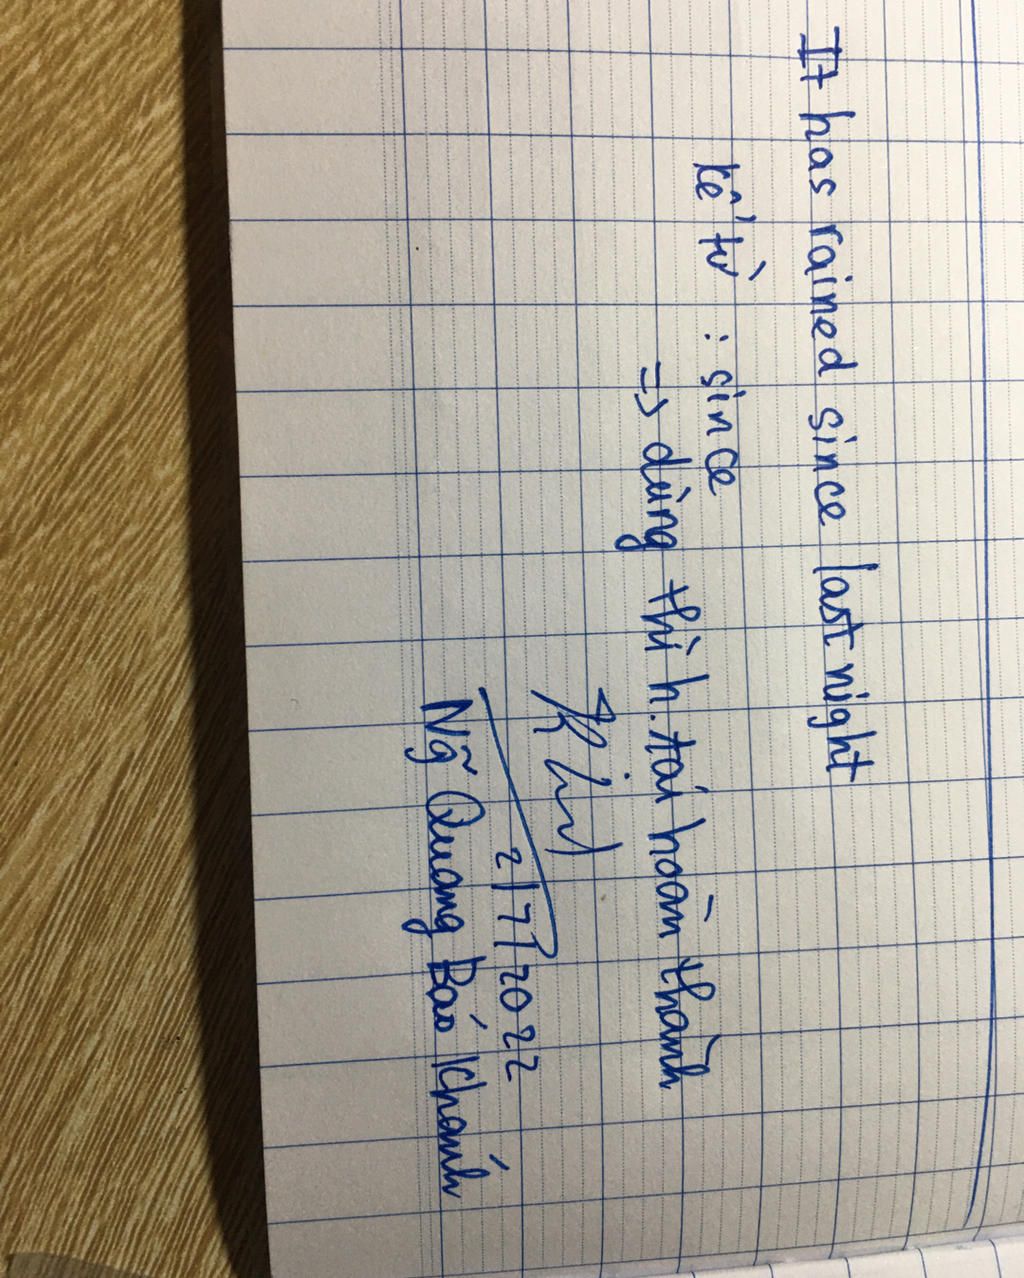 It has rained since last night
kể từ : since
=> dùng thì h.tại hoàn thành
2/7/2022
Ngỡ Quang Bảo Khánh